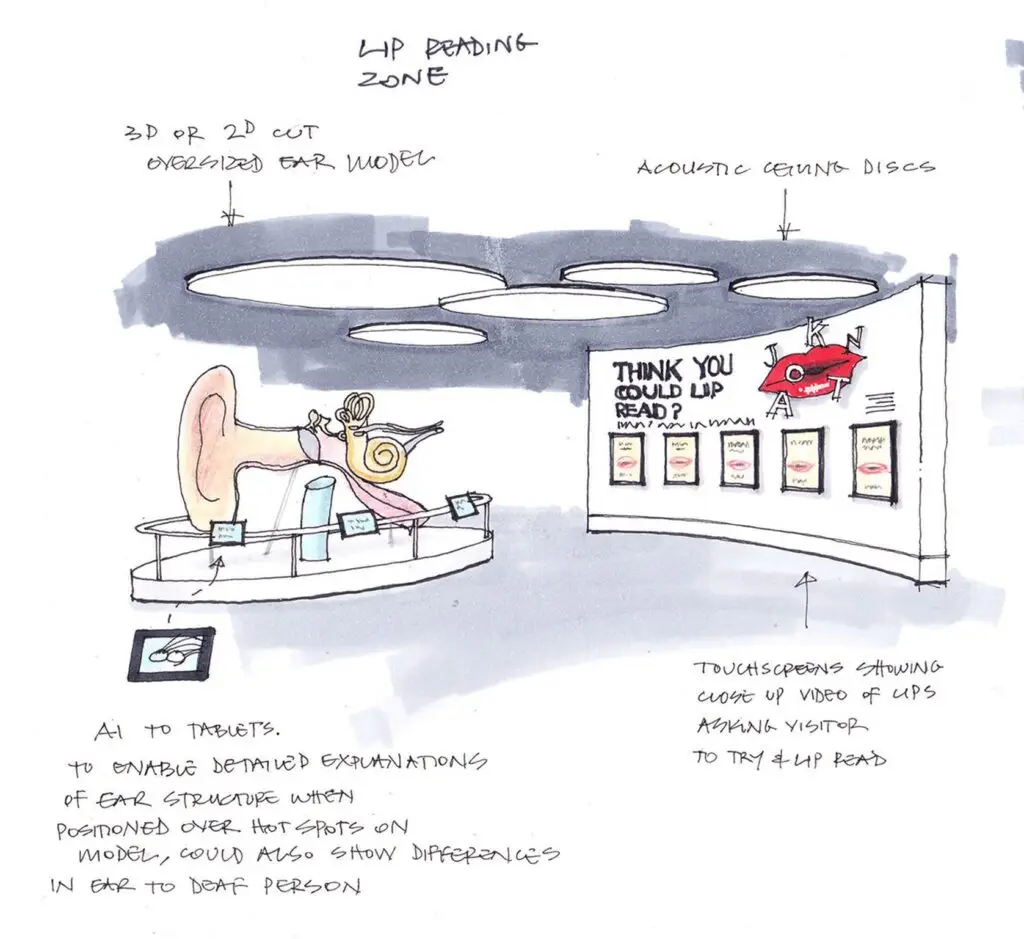 LIP READING
ZONE
3D OR 2D CUT
OVERSIZED EAR MODEL
ACOUSTIC CEILING DISCS
THINK YOU
COULD LIP
READ?
J K N
O T
A
TOUCHSCREENS SHOWING
CLOSE UP VIDEO OF LIPS
ASKING VISITOR
TO TRY & LIP READ
A.I TO TABLETS.
TO ENABLE DETAILED EXPLANATIONS
OF EAR STRUCTURE WHEN
POSITIONED OVER HOT SPOTS ON
MODEL, COULD ALSO SHOW DIFFERENCES
IN EAR TO DEAF PERSON